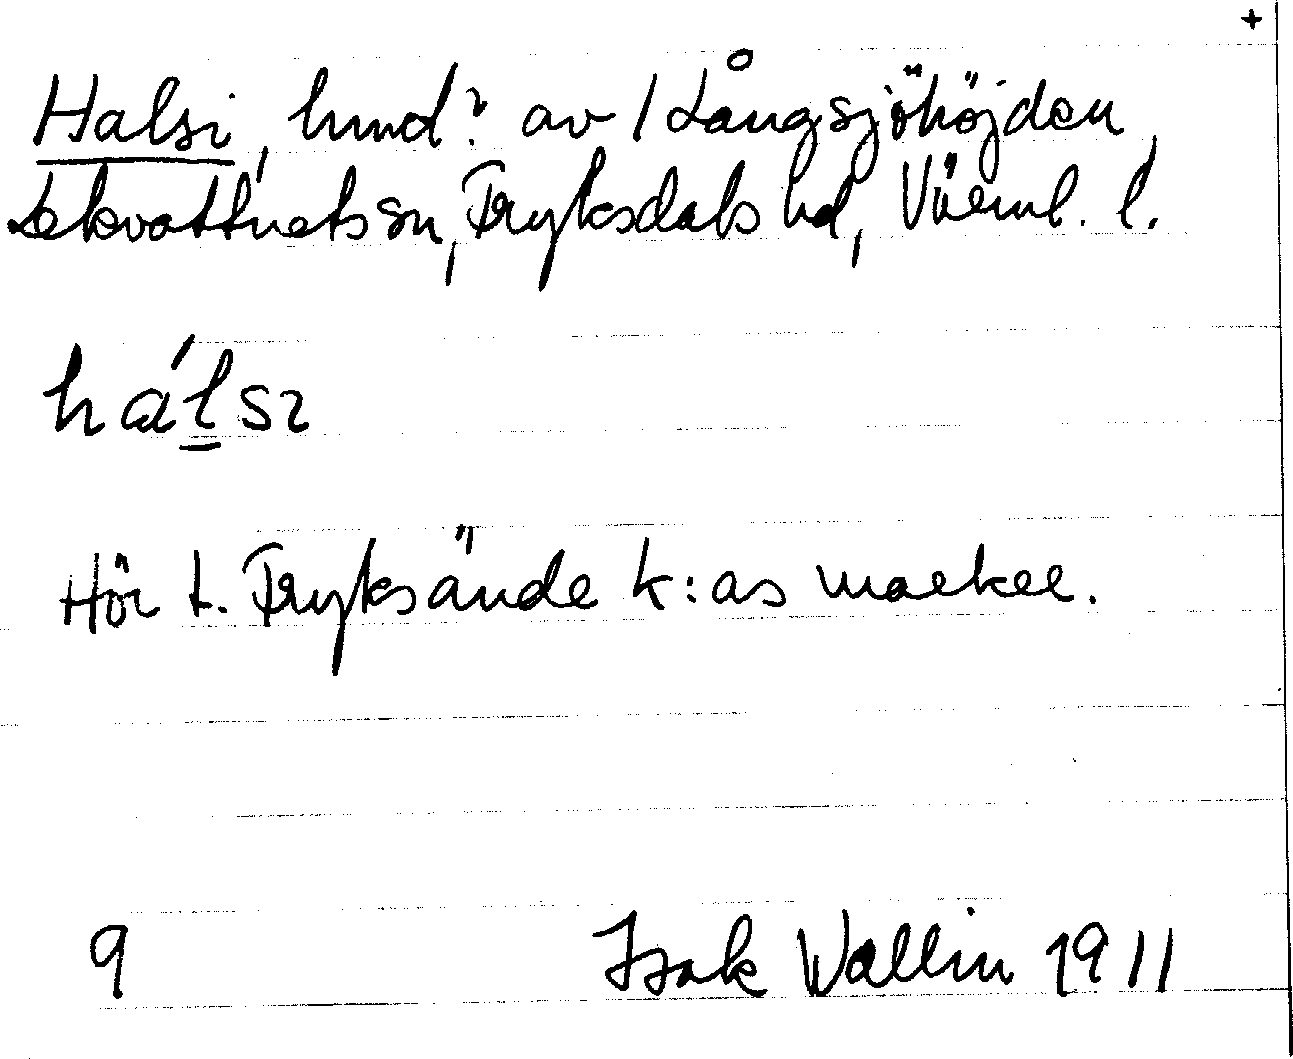 +
Halsi, hmd? av 1 Långsjöhöjden,
Lekvattnets sn, Fryksdals hd, Värml. l.
há́l̲sɪ
Hör t. Fryksände k:as marker.
9 Isak Wallin 1911